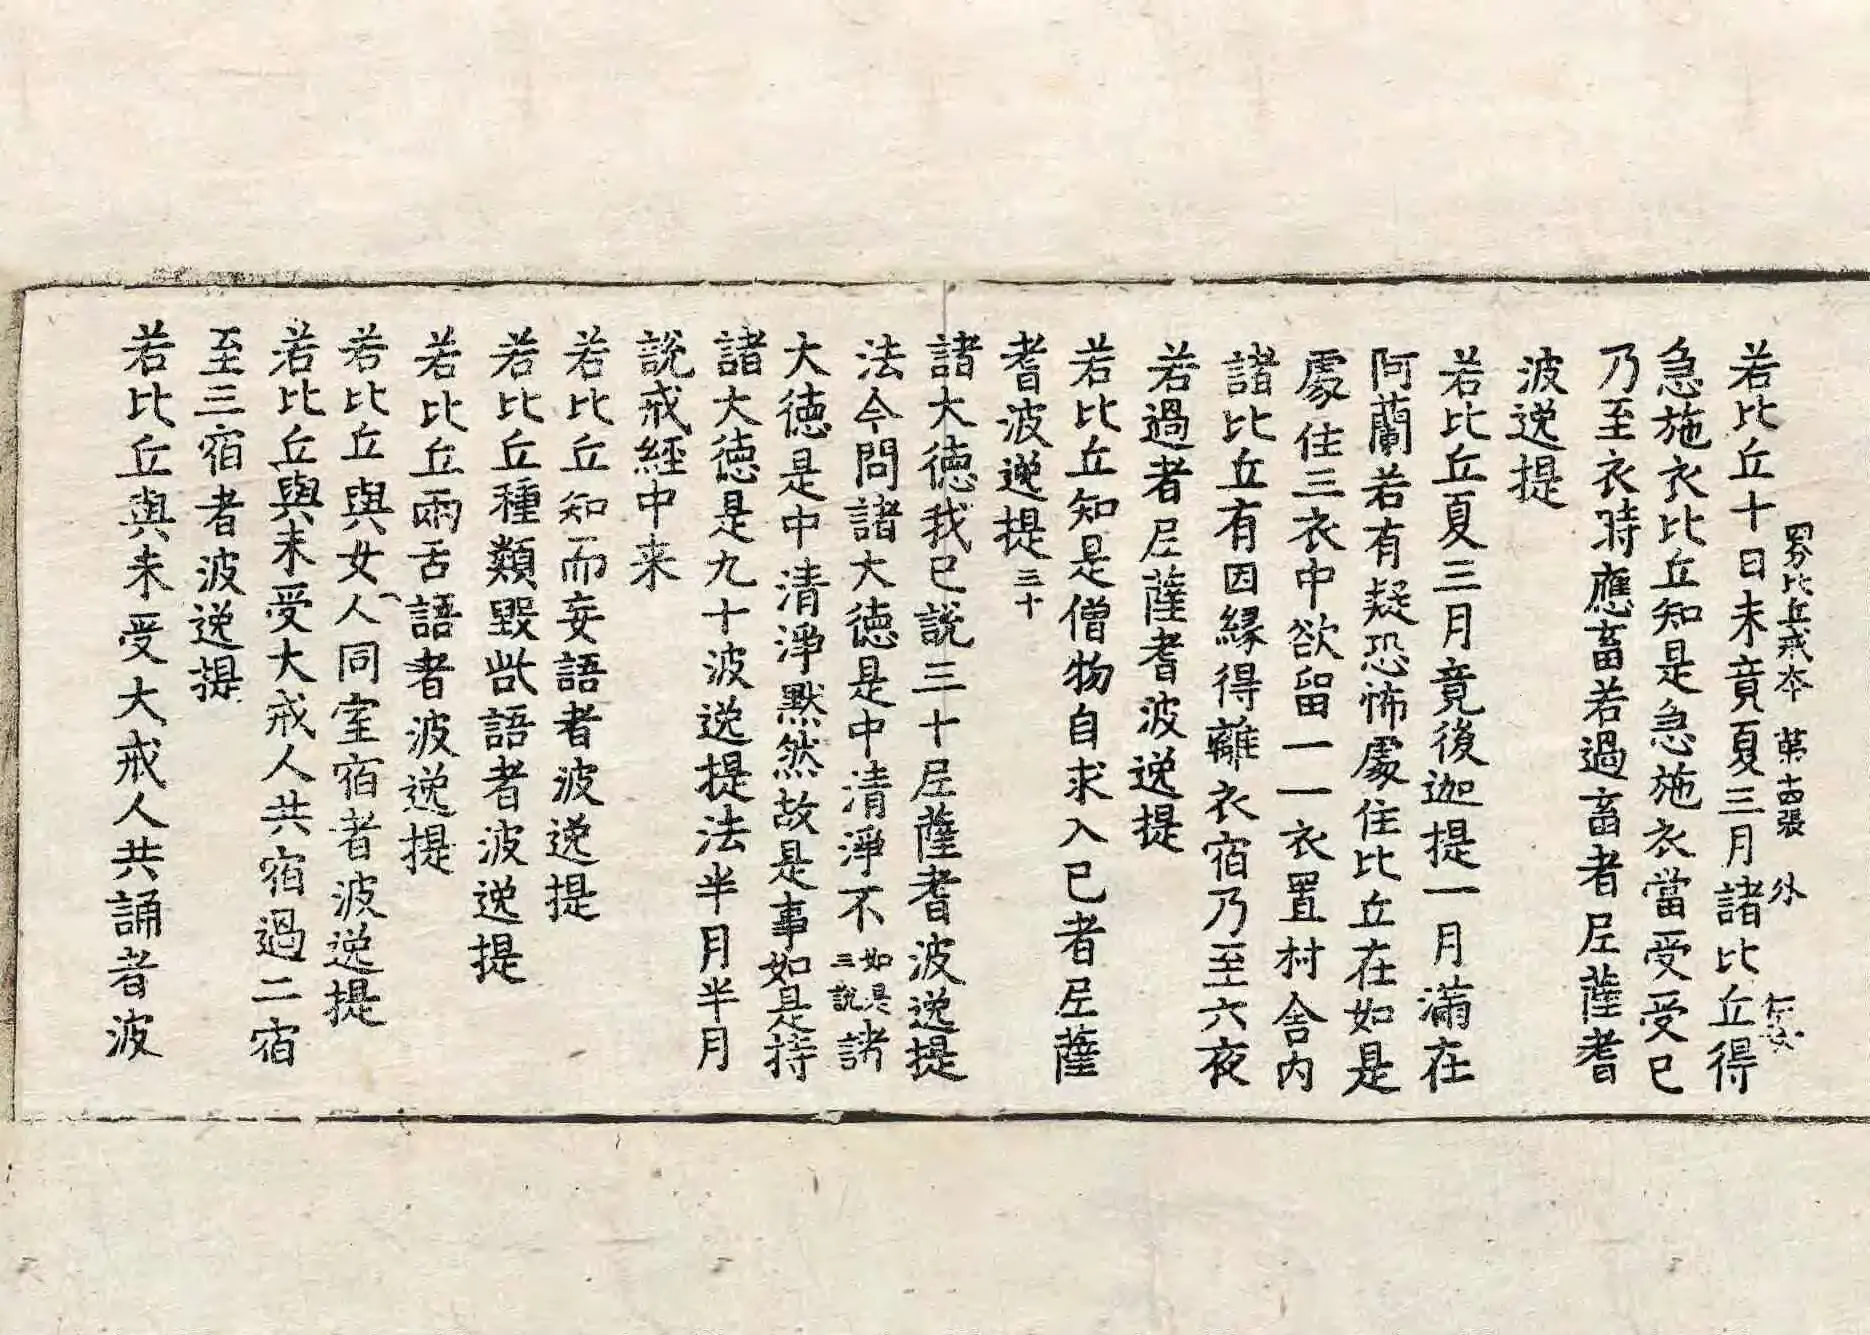 四分比丘戒本 第十四張 外
若比丘十日未竟夏三月諸比丘得
急施衣比丘知是急施衣當受受已
乃至衣時應畜若過畜者尼薩耆
波逸提
若比丘夏三月竟後迦提一月滿在
阿蘭若有疑恐怖處住比丘在如是
處住三衣中欲留一一衣置村舍内
諸比丘有因緣得離衣宿乃至六夜
若過者尼薩耆波逸提
若比丘知是僧物自求入已者尼薩
耆波逸提三十
諸大德我已說三十尼薩耆波逸提
法今問諸大德是中清淨不如是三說諸
大德是中清淨默然故是事如是持
諸大德是九十波逸提法半月半月
說戒經中来
若比丘知而妄語者波逸提
若比丘種類毀呰語者波逸提
若比丘兩舌語者波逸提
若比丘與女人同室宿者波逸提
若比丘與未受大戒人共宿過二宿
至三宿者波逸提
若比丘與未受大戒人共誦者波